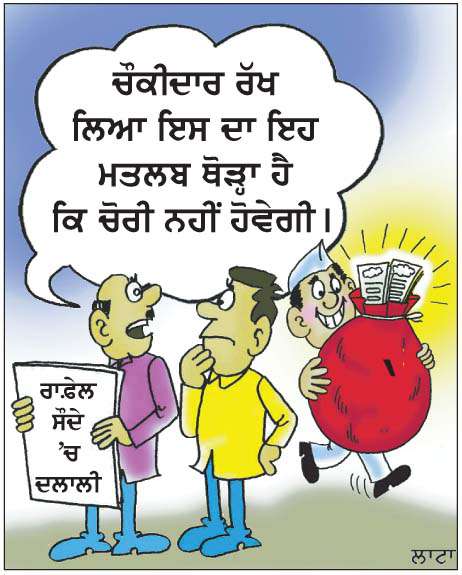 ਚੌਕੀਦਾਰ ਰੱਖ
ਲਿਆ ਇਸ ਦਾ ਇਹ
ਮਤਲਬ ਥੋੜ੍ਹਾ ਹੈ
ਕਿ ਚੋਰੀ ਨਹੀਂ ਹੋਵੇਗੀ।
ਰਾਫ਼ੇਲ
ਸੌਦੇ
'ਚ
ਦਲਾਲੀ
ਲਾਟਾ